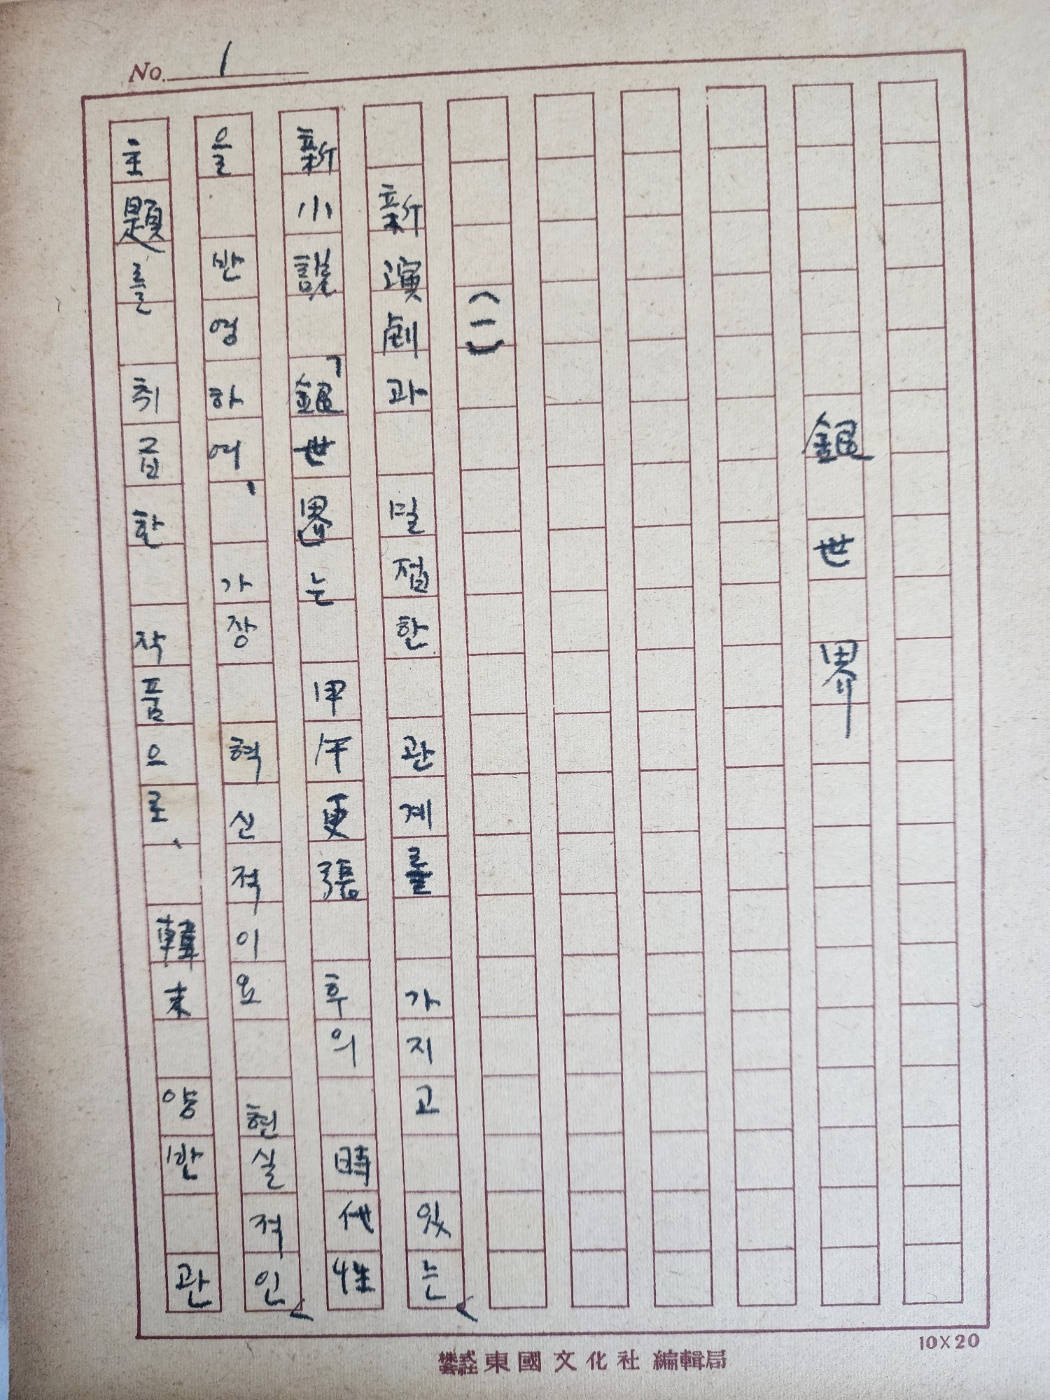 No. 1
銀世界
(一)
新演劇과 밀접한 관계를 가지고 있는
新小説 「銀世界」는 甲午更張 후의 時代性
을 반영하여, 가장 혁신적이요 현실적인
主題를 취급한 작품으로、 韓末 양반 관
東國文化社 編輯局
10×20